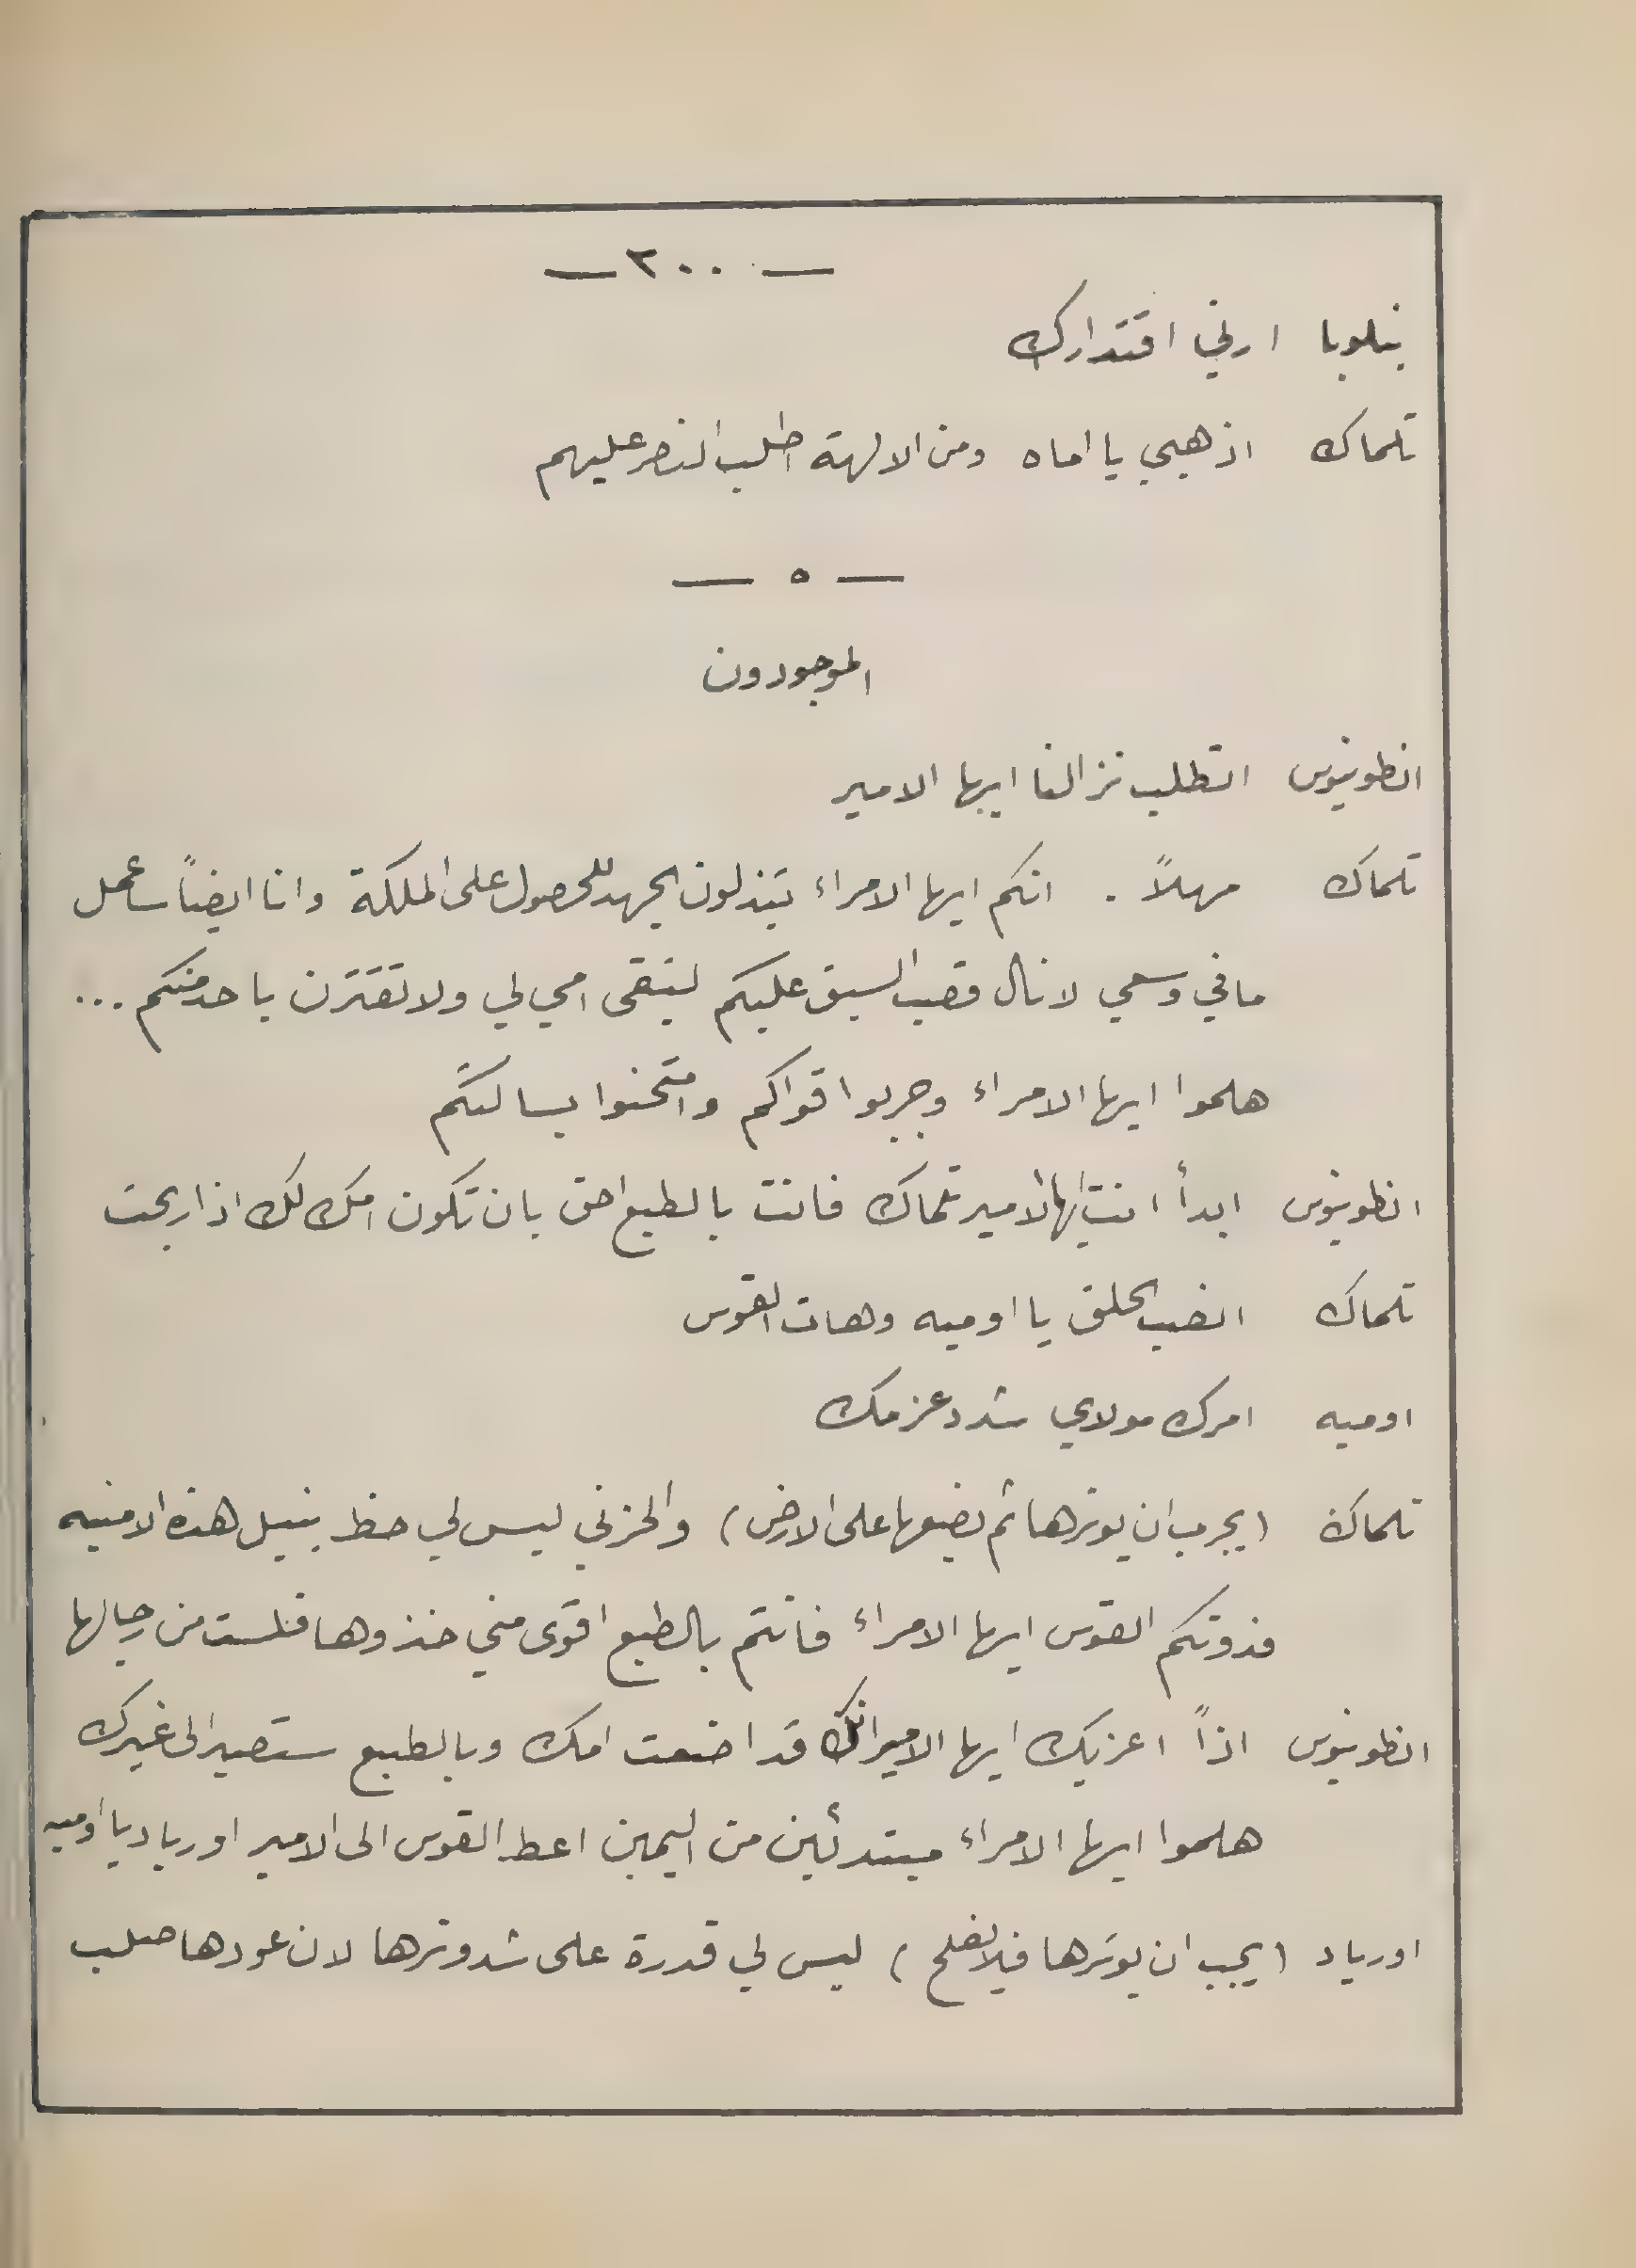 — ٢٠٠ —
بنلوبا ارني اقتدارك
تلماك اذهبي يا اماه ومن الالهة اطلب النصر عليهم
— ٥ —
الموجودون
انطونيوس اتطلب نزالنا ايها الامير
تلماك مهلاً . انكم ايها الامراء تبذلون الجهد للحصول على المملكة وانا ايضاً ساعمل
ما في وسعي لانال قصب السبق عليكم لتبقى امي لي ولا تقترن باحد منكم ...
هلموا ايها الامراء وجربوا قواكم وامتحنوا بسالتكم
انطونيوس ابدأ انت ايها الامير تلماك فانت بالطبع احق بان تكون امك لك اذا ربحت
تلماك انصب الحلق يا اوميه وهات القوس
اوميه امرك مولاي شدد عزمك
تلماك (يجرب ان يوترها ثم يضعها على الارض) واحزني ليس لي حظ بنيل هذه الامنيه
فدونكم القوس ايها الامراء فانتم بالطبع اقوى مني خذوها فلست من رجالها
انطونيوس اذاً اعزيك ايها الامير انك قد اضعت امك وبالطبع ستصير الى غيرك
هلموا ايها الامراء مبتدئين من اليمين اعط القوس الى الامير اورياد يا اوميه
اورياد (يجب ان يوترها فلا يفلح) ليس لي قدرة على شد وترها لان عودها صلب